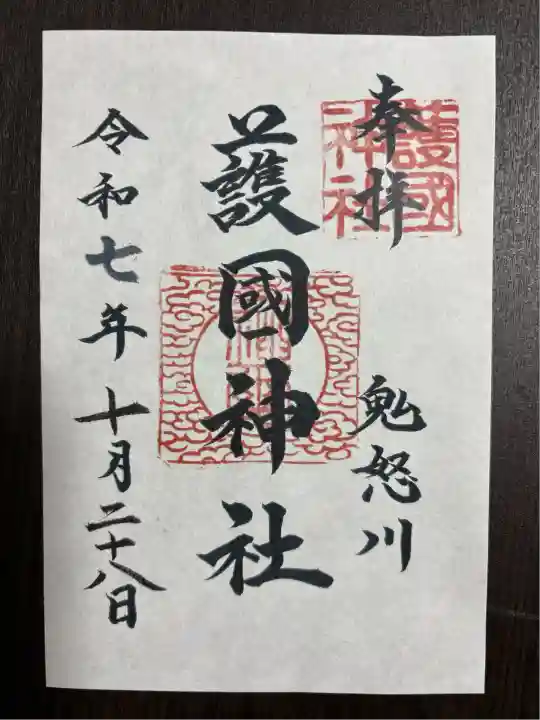 奉拝
鬼怒川
護國神社
護國神社
令和七年十月二十八日